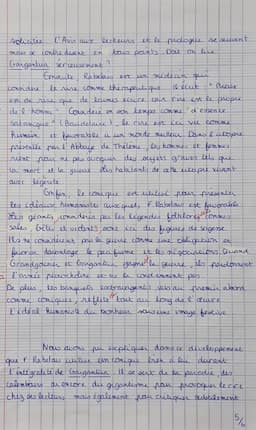 sollicitée. L'Avis aux lecteurs et le prologue se suivent
mais se contredisent en tous points. Doit on lire
Gargantua sérieusement ?
Ensuite Rabelais est un médecin qui
considère le rire comme thérapeutique. Il écrit "Mieux
est de ris que de larmes écrire car rire est le propre
de l'homme". Considéré en son temps comme "d'essence
satanique" (Baudelaire), le rire est ici vu comme
humain et favorable à un monde meilleur. Dans l'utopie
présentée par l'Abbaye de Thélème, les hommes et femmes
rient pour ne pas évoquer des sujets graves tels que
la mort et la guerre. Les habitants de cette utopie vivent
avec légèreté.
Enfin, le comique est utilisé pour présenter
les idéaux humanistes auxquels F. Rabelais est favorable
Les géants considérés par les légendes folkloriques comme
sales, bêtes et violents sont ici des figures de sagesse
Ils ne considèrent pas la guerre comme une obligation et
favorise davantage le pacifisme et les négociations. Quand
Grandgousier et Gargantua gagne la guerre ils pardonnent
l'armée picrocholine et ne la condamnent pas.
De plus, les banquets extravagants vus au premier abord
comme comiques, reflète tout au long de l'œuvre
l'idéal humaniste du bonheur sous une image festive.
Nous avons pu expliquer dans ce développement
que F. Rabelais utilise un comique bien à lui durant
l'intégralité de Gargantua. Il se sert de la parodie, des
calembours ou encore du gigantisme pour provoquer le rire
chez ses lecteurs mais également pour critiquer subtilement
5/